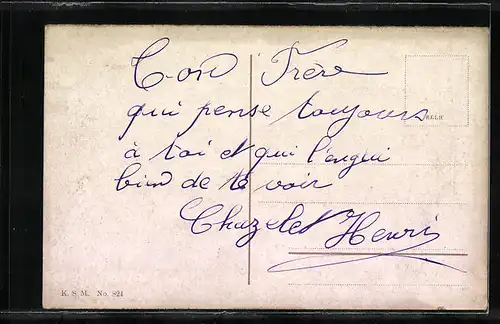 Ton Frère
qui pense toujours
à toi et qui l'engui
bien de te voir
Chazelet Henri
K. S. M. No. 824